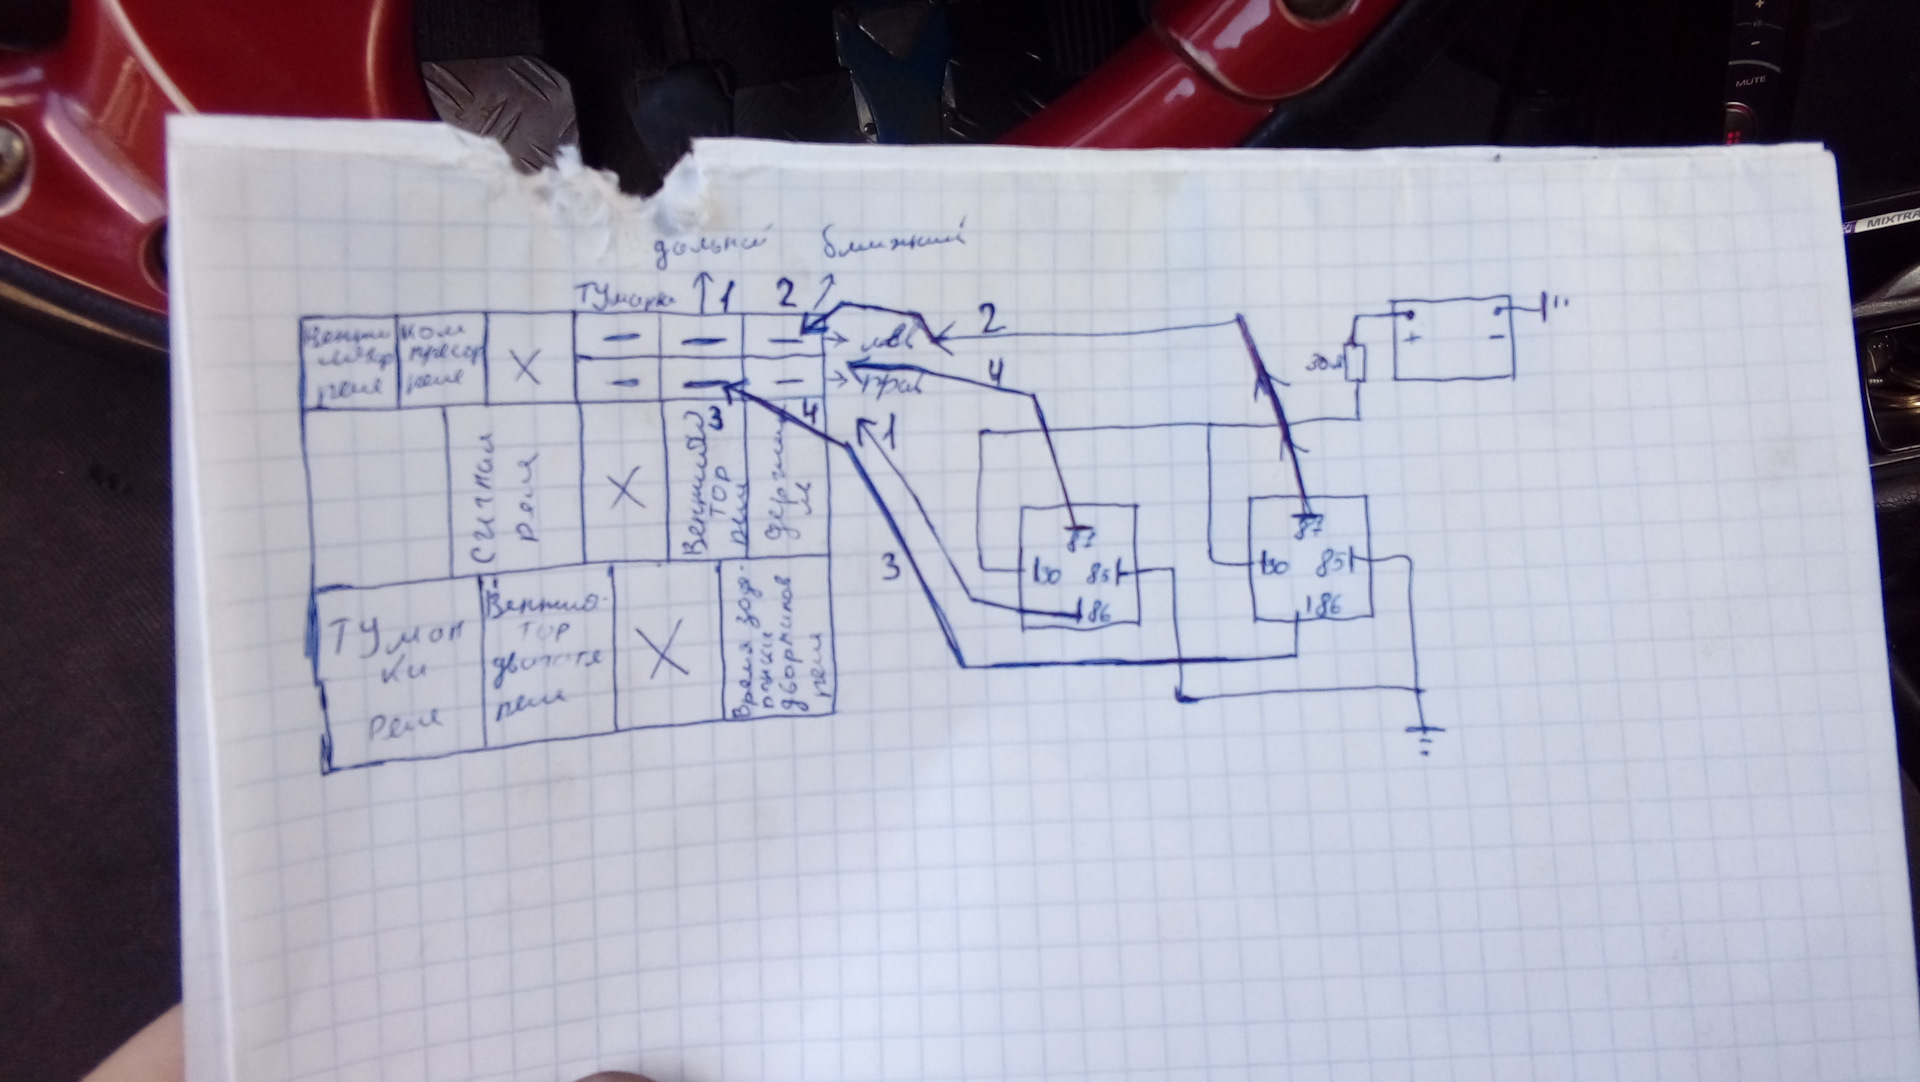 +
-
MUTE
MIXTRA
дальний
ближний
Туманки
1
2
лев
2
прав
4
3
4
1
3
Компресор
реле
X
Сигнал
реле
X
Вентилятор
реле
Туман
ки
реле
Вентиля-
тор
двигателя
реле
X
Время задержки
дворников
реле
30А
+
-
87
30
85
86
87
30
85
86